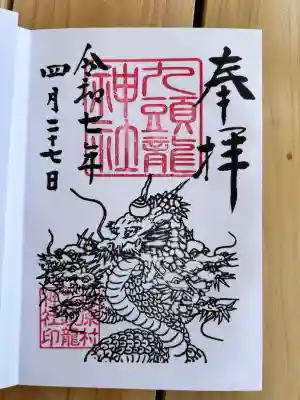 奉拝
九頭龍
神社
令和七年
四月二十七日
神社印